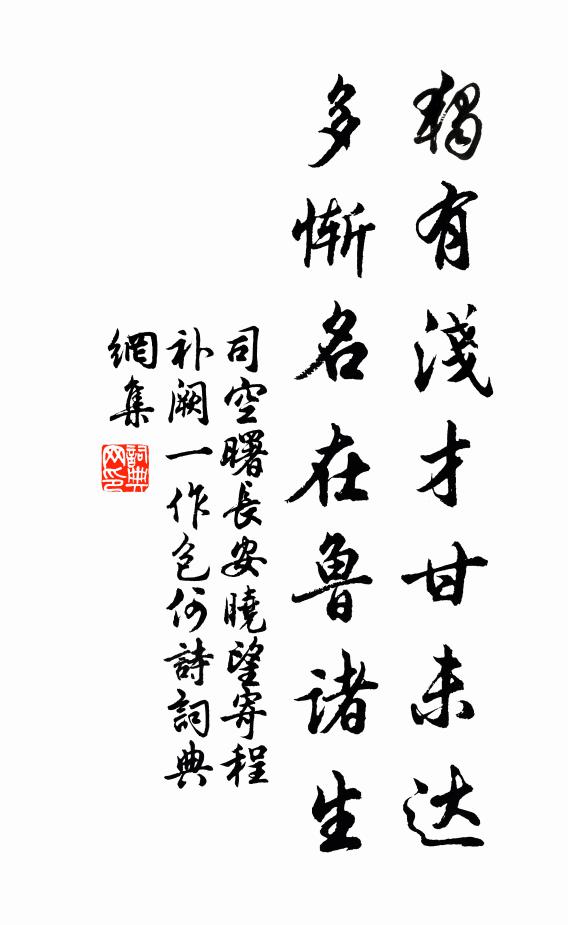 獨有淺才甘未达
多慚名在魯諸生
司空曙長安曉望寄程
补闕一作包何詩詞典
網集
詞典
网印